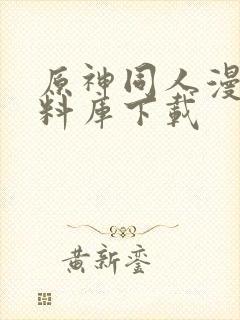 原神同人漫
料库下载
黄新銮